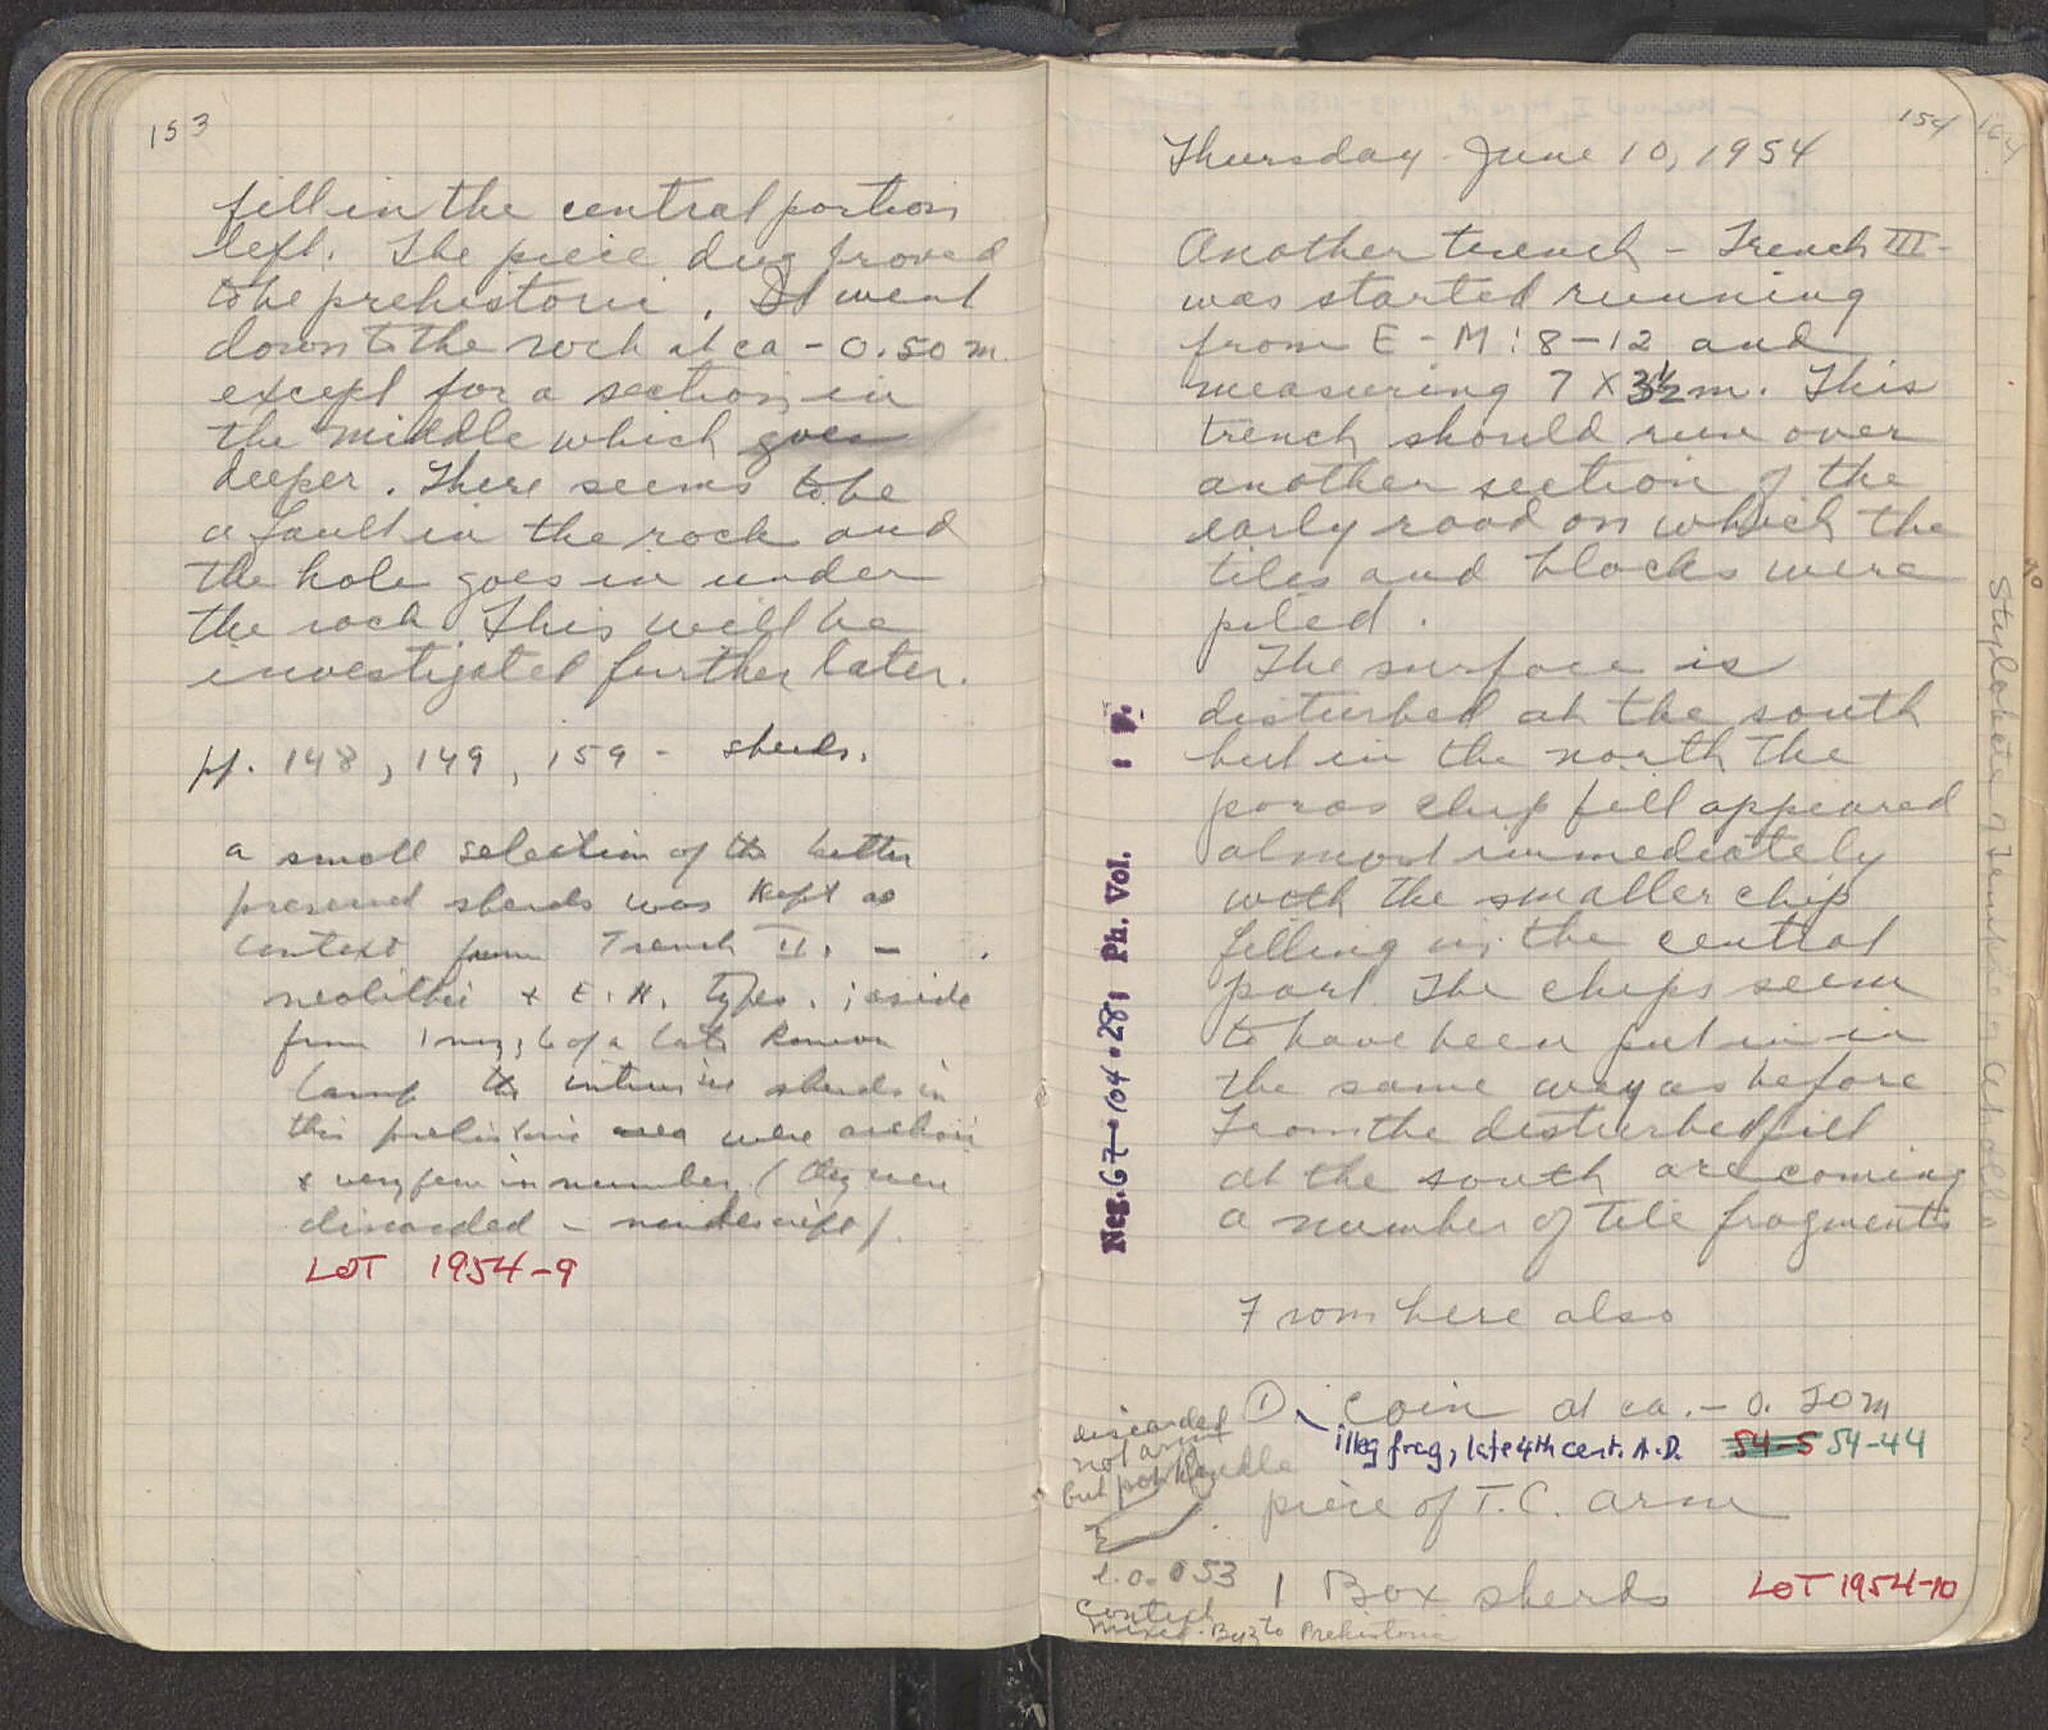 153
fill in the central portion
left. The piece dug proved
to be prehistoric. It went
down to the rock at ca - 0.50 m.
except for a section in
the middle which goes
deeper. There seems to be
a fault in the rock and
the hole goes in under
the rock. This will be
investigated further later.
pp. 148, 149, 159 - sherds.
a small selection of the better
preserved sherds was kept as
context from Trench II. -
neolithic + E.H. types. ; aside
from 1 of a late Roman
lamp the intrusive sherds in
this prehistoric area were archaic
& very few in number (they were
discarded - nondescript).
LOT 1954-9
154
Thursday June 10, 1954
Another trench - Trench III -
was started running
from E - M : 8-12 and
measuring 7 x 3½ m. This
trench should run over
another section of the
early road on which the
tiles and blocks were
piled.
The surface is
disturbed at the south
but in the north the
poros chip fill appeared
almost immediately
with the smaller chip
filling in the central
part. The chips seem
to have been put in in
the same way as before
From the disturbed fill
at the south are coming
a number of tile fragments
From here also
① Coin at ca. - 0.50 m
illeg frag, late 4th cent. A.D. 54-5 54-44
discarded
not arm
but pot handle
piece of T.C. arm
1 Box sherds LOT 1954-10
053
context
mixed. Byz to Prehistoric
Neg. 67-104-28 Ph. Vol.
164
Stylobate of Temple